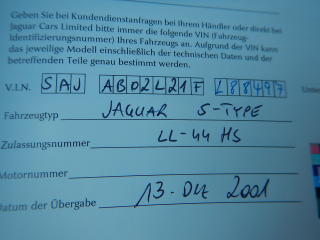 Geben Sie bei Kundendienstanfragen bei Ihrem Händler oder direkt bei
Jaguar Cars Limited bitte immer die folgende VIN (Fahrzeug-
Identifizierungsnummer) Ihres Fahrzeugs an. Aufgrund der VIN kann
das jeweilige Modell einschließlich der technischen Daten und der
betreffenden Teile genau bestimmt werden.
V.I.N. SAJ AB02L21F L88497
Fahrzeugtyp JAGUAR S-TYPE
Zulassungsnummer LL-44 HS
Motornummer
Datum der Übergabe 13. Dez 2001